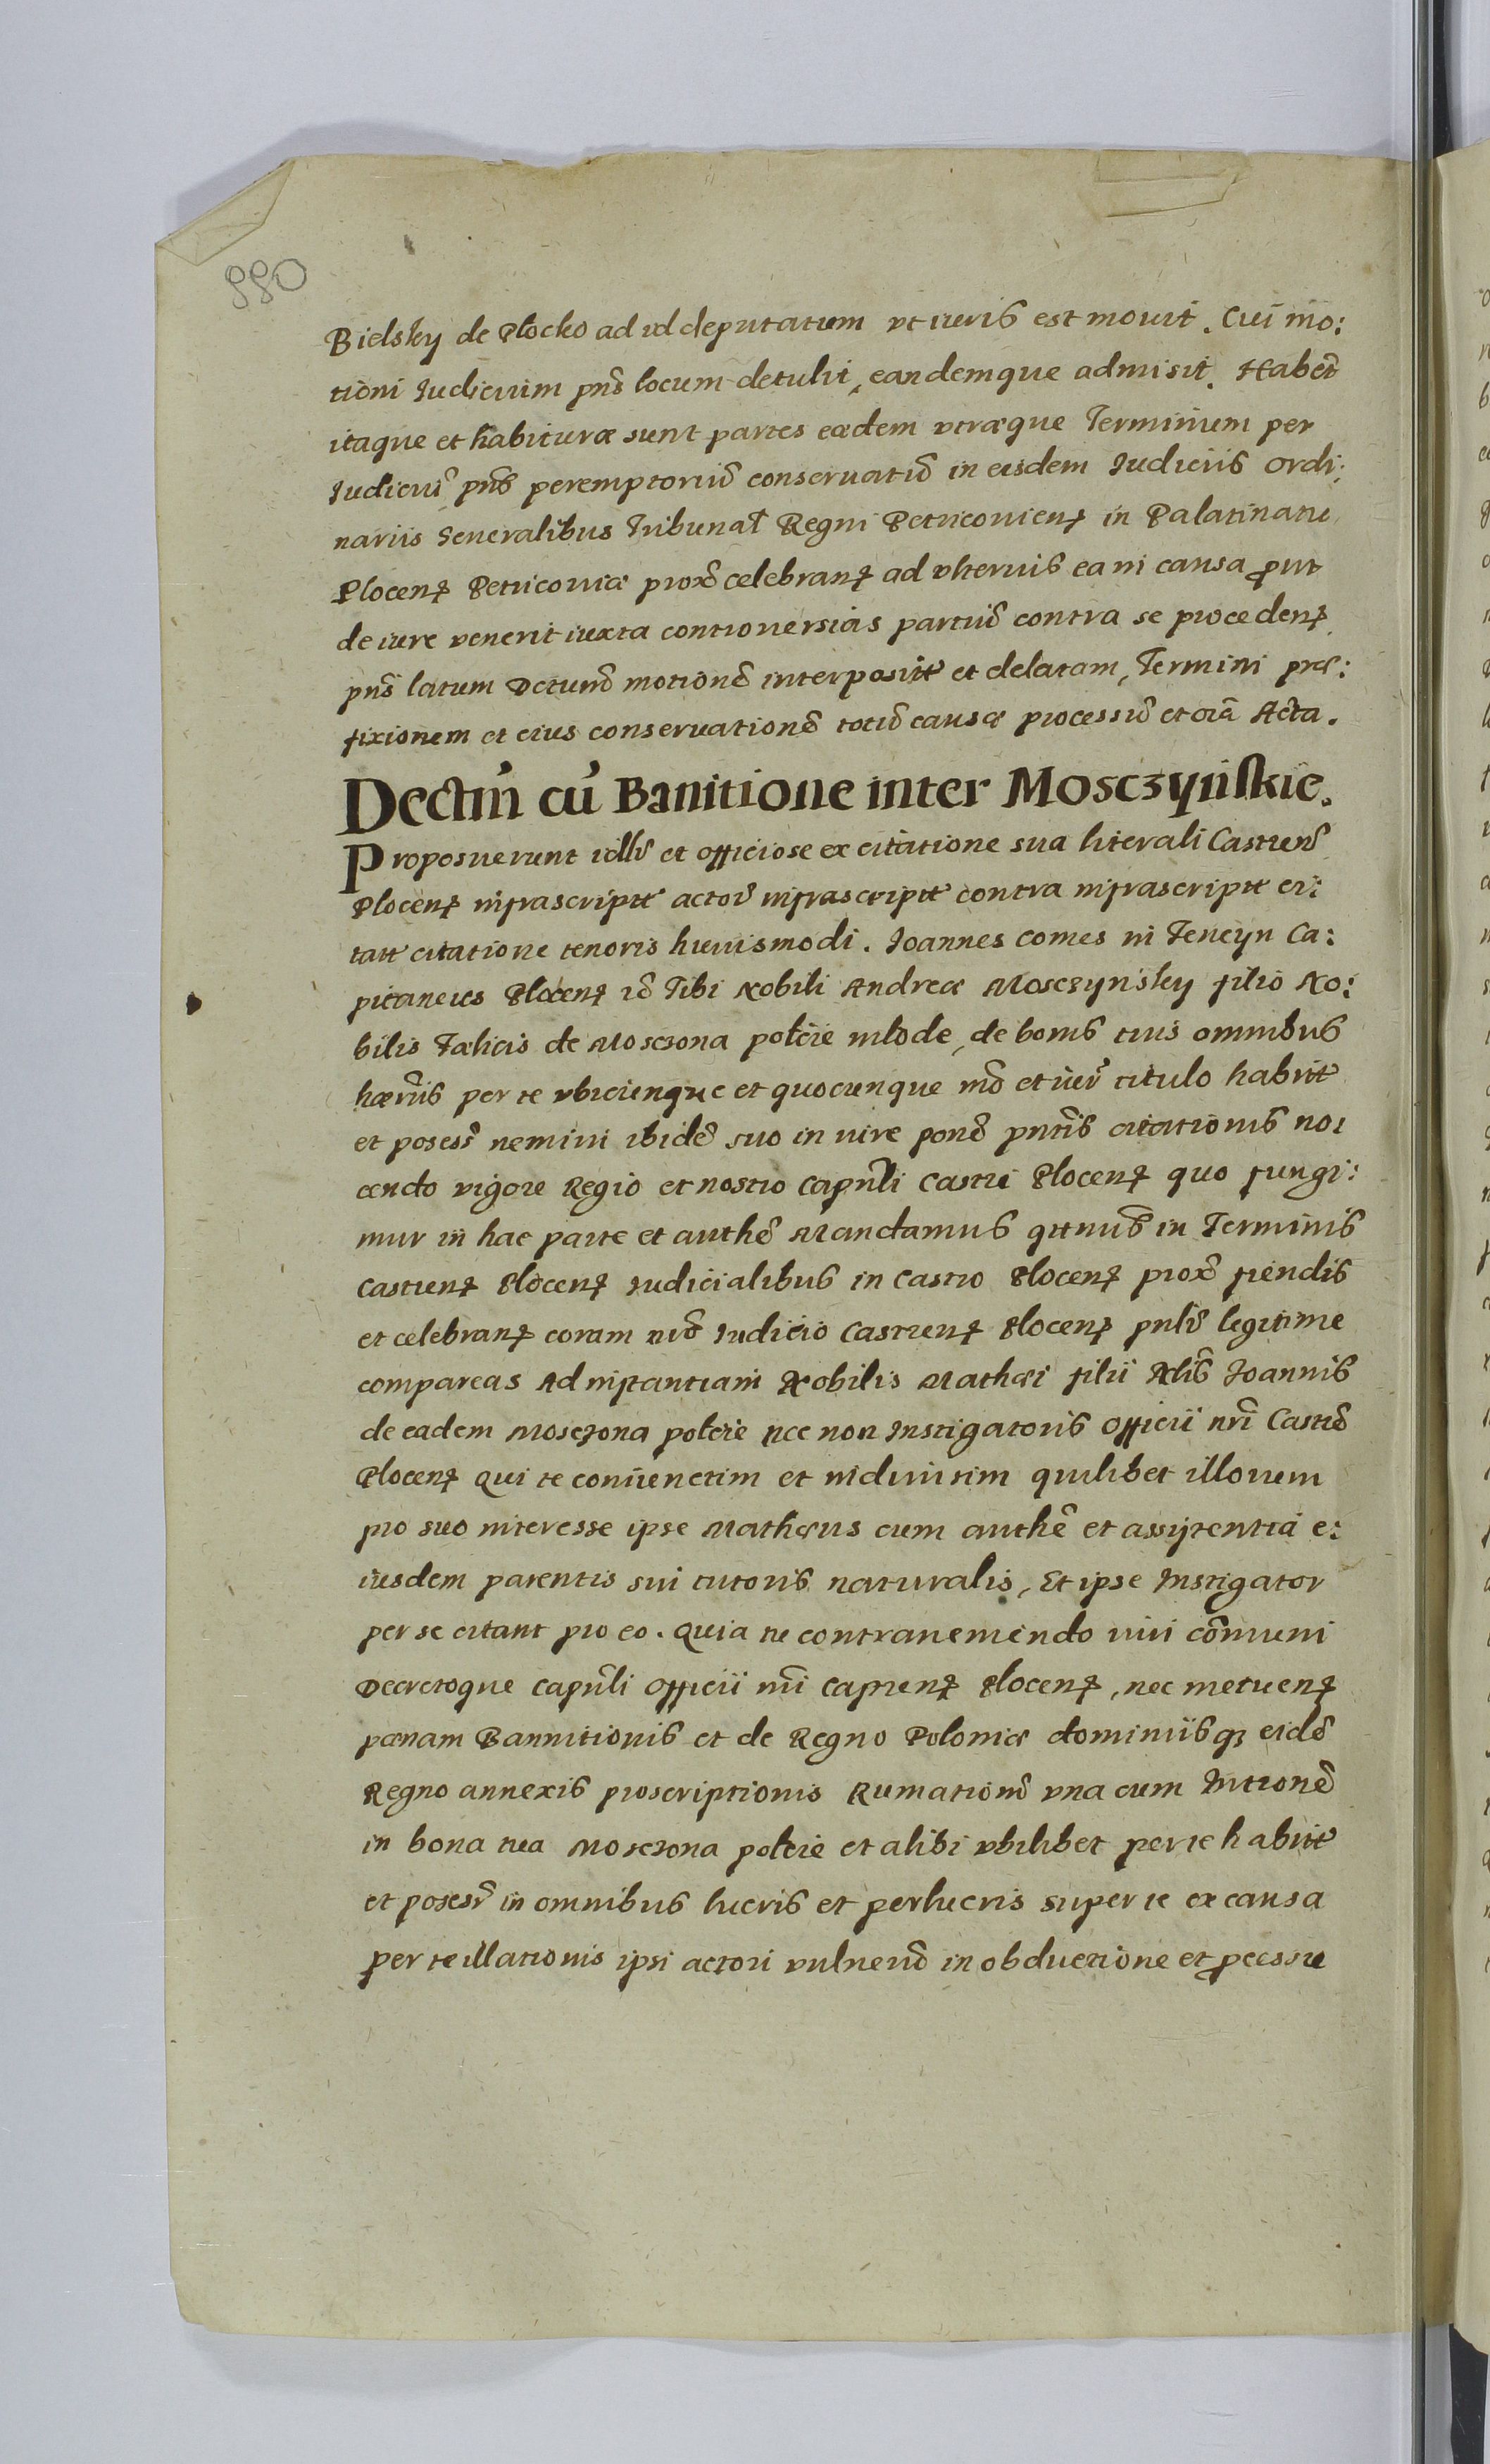 880
Bielsky de Plocko ad id deputatum ut iuris est mouit. Cui mo:
tioni Iudicium pñs locum detulit, eandemque admisit. Habēt
itaque et habituræ sunt partes eædem vtræque Terminum per
Iudiciũ pñs peremptoriũ conseruatũ in eisdem Iudiciis ordi:
nariis Generalibus Tribunal Regni Petricouien̄ in Palatinatu
Plocen̄ Petricouiæ prox̃ celebran̄ ad vlterius ea in causa prout
de iure venerit iuxta controuersias partiũ contra se proceden̄
pñs latum Dctum̃ motionẽ interposit et delatam, Termini præ:
fixionem et eius conseruationẽ totiũ causæ processũ et oĩa Acta.
Dectm̃ cũ Banitione inter Mosczyńskie.
Proposuerunt et officiose ex citatione sua literali Castren̄
Plocen̄ infrascript actor̃ infrascript contra infrascript ci:
tatt citatione tenoris huiusmodi. Ioannes Comes in Tencyn Ca:
pitaneus Plocen̄ Tibi Nobili Andreæ Mosczynsky filio No:
bilis Fælicis de Mosczona polcie mlode, de bonis tuis omnibus
per te vbicunque et quocunque mõ et iur̃ titulo habitt
et posess̃ nemini ibidẽ suo in iure pñtis citationis no:
cendo vigore Regio et nostro Capñli Castri Plocen̄ quo fungi:
mur in hac parte et authẽ Mandamus qtnus̃ in Terminis
Castren̄ Plocen̄ Iudicialibus in Castro Plocen̄ prox̃ fiendis
et celebran̄ coram nrõ Iudicio Castren̄ Plocen̄ legitime
compareas Ad instantiam Nobilis Mathæi filii Nlis̃ Ioannis
de eadem Mosczona polcie nec non Instigatoris Officii nri̇̃ Castrẽ
Plocen̄ qui te coniunctim et indiuisim quilibet illorum
pro suo interesse ipse Mathæus cum authẽ et assistentia e:
iusdem parentis sui tutoris naturalis, Et ipse Instigator
per se citant pro eo. Quia tu contraueniendo iuri cõmuni
Decretoque Capñli Officii nri̇̃ Castren̄ Plocen̄, nec metuen̄
pænam Bannitionis et de Regno Poloniæ dominiisq3 eidẽ
Regno annexis proscriptionis Rumationẽ vna cum Intronẽ
in bona tua Mosczona polcie et alibi vbilibet per te habitt
et posess̃ in omnibus lucris et perlucris super te ex causa
per te illationis ipsi actori vulnerũ in obductione et pcessu